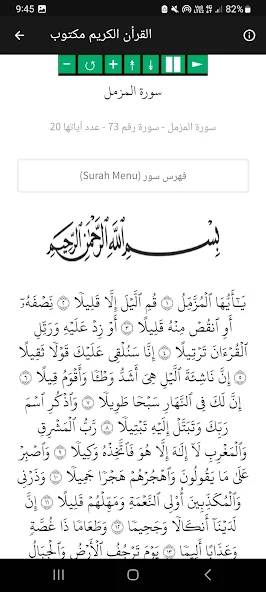 9:45 82%
القرآن الكريم مكتوب
سورة المزمل
سورة المزمل - سورة رقم 73 - عدد آياتها 20
فهرس سور (Surah Menu)
بِسْمِ ٱللَّهِ ٱلرَّحْمَٰنِ ٱلرَّحِيمِ
يَٰٓأَيُّهَا ٱلْمُزَّمِّلُ ١ قُمِ ٱلَّيْلَ إِلَّا قَلِيلًا ٢ نِّصْفَهُۥٓ
أَوِ ٱنقُصْ مِنْهُ قَلِيلًا ٣ أَوْ زِدْ عَلَيْهِ وَرَتِّلِ
ٱلْقُرْءَانَ تَرْتِيلًا ٤ إِنَّا سَنُلْقِى عَلَيْكَ قَوْلًا ثَقِيلًا
٥ إِنَّ نَاشِئَةَ ٱلَّيْلِ هِىَ أَشَدُّ وَطْـًٔا وَأَقْوَمُ قِيلًا ٦
إِنَّ لَكَ فِى ٱلنَّهَارِ سَبْحًا طَوِيلًا ٧ وَٱذْكُرِ ٱسْمَ
رَبِّكَ وَتَبَتَّلْ إِلَيْهِ تَبْتِيلًا ٨ رَّبُّ ٱلْمَشْرِقِ
وَٱلْمَغْرِبِ لَآ إِلَٰهَ إِلَّا هُوَ فَٱتَّخِذْهُ وَكِيلًا ٩ وَٱصْبِرْ
عَلَىٰ مَا يَقُولُونَ وَٱهْجُرْهُمْ هَجْرًا جَمِيلًا ١٠ وَذَرْنِى
وَٱلْمُكَذِّبِينَ أُو۟لِى ٱلنَّعْمَةِ وَمَهِّلْهُمْ قَلِيلًا ١١ إِنَّ
لَدَيْنَآ أَنكَالًا وَجَحِيمًا ١٢ وَطَعَامًا ذَا غُصَّةٍ
وَعَذَابًا أَلِيمًا ١٣ يَوْمَ تَرْجُفُ ٱلْأَرْضُ وَٱلْجِبَالُ